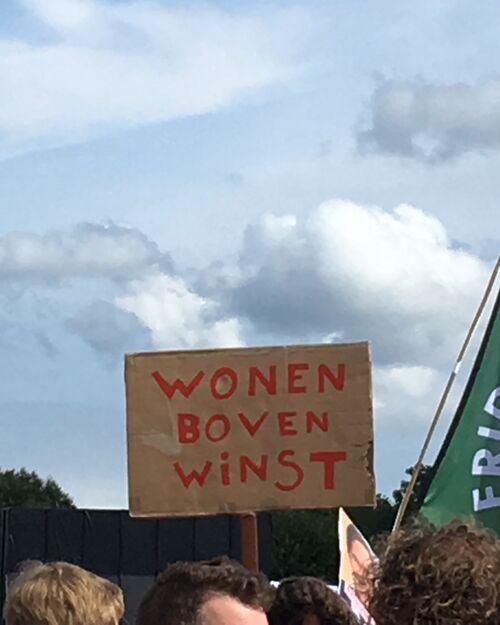 WONEN
BOVEN
WiNST